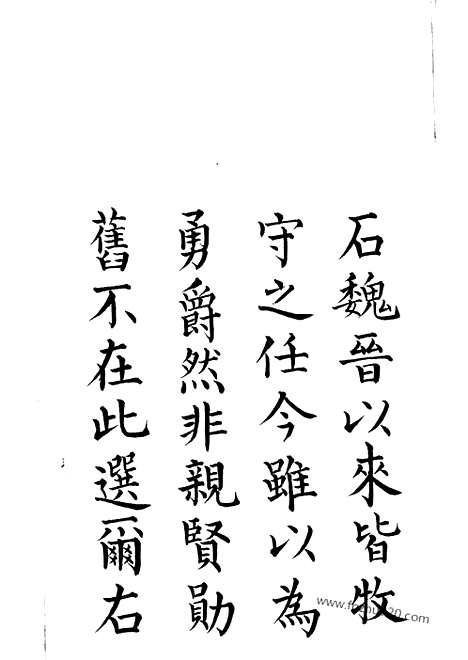 石魏晉以來皆牧
守之任今雖以為
勇爵然非親賢勛
舊不在此選爾右